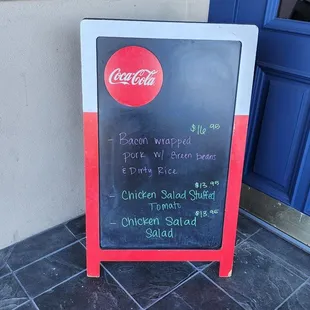 Coca-Cola
$16.95
- Bacon wrapped
pork w/ Green beans
& Dirty Rice
$13.99
- Chicken Salad Stuffed
Tomato
$13.95
- Chicken Salad
Salad